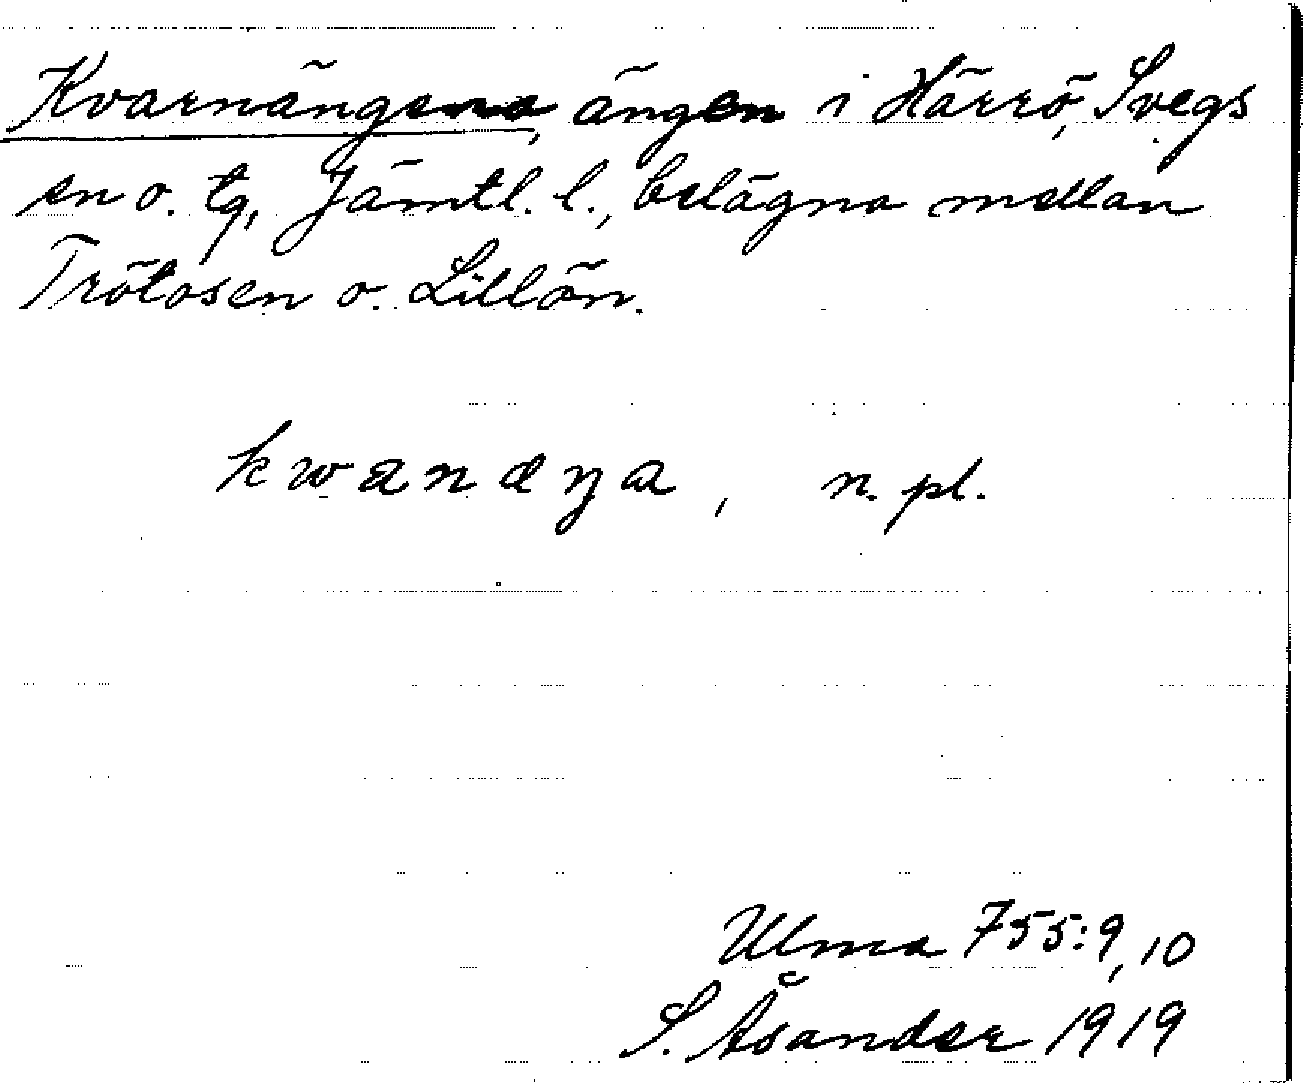 Kvarnängena, ängen i Härrö, Svegs
sn o. tg, Jämtl. l., belägna mellan
Trötosen o. Lillön.
kwanæŋa, n. pl.
Ulma 755:9, 10
S. Åsander 1919